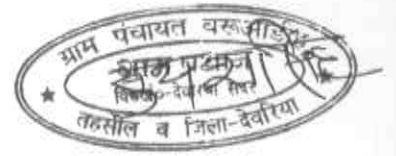 ग्राम पंचायत बरूआडीह
ग्राम प्रधान
वि०ख०-देवरिया सदर
तहसील व जिला-देवरिया